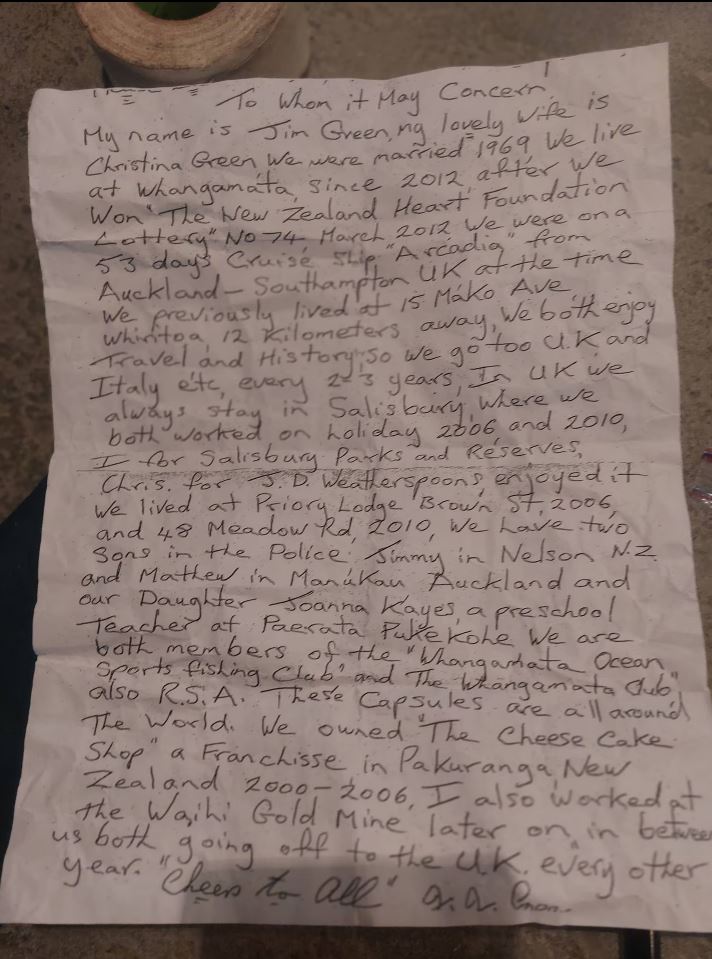 To Whom it May Concern
My name is Jim Green, my lovely wife is
Christina Green We were married 1969 We live
at Whangamata, since 2012, after We
Won "The New Zealand Heart Foundation
Lottery" No 74, March 2012 We were on a
53 days Cruise Ship "Arcadia" from
Auckland - Southampton UK at the time
We previously lived at 15 Mako Ave
Whiritoa, 12 Kilometers away, We both enjoy
Travel and History, so we go too U.K and
Italy etc, every 2-3 years, In UK we
always stay in Salisbury, where we
both worked on holiday 2006 and 2010,
I for Salisbury Parks and Reserves,
Chris. for J.D. Weatherspoons, enjoyed it
We lived at Priory Lodge Brown St, 2006,
and 48 Meadow Rd, 2010, We have two
Sons in the Police Jimmy in Nelson N.Z
and Mathew in Manukau Auckland and
our Daughter Joanna Kayes, a preschool
Teacher at Paerata Pukekohe We are
both members of the "Whangamata Ocean
Sports fishing Club" and The Whangamata Club"
also R.S.A. These Capsules are all around
The World. We owned "The Cheese Cake
Shop" a Franchisse in Pakuranga, New
Zealand 2000-2006, I also worked at
the Waihi Gold Mine later on in between
us both going off to the U.K. every other
year. "Cheers to All"